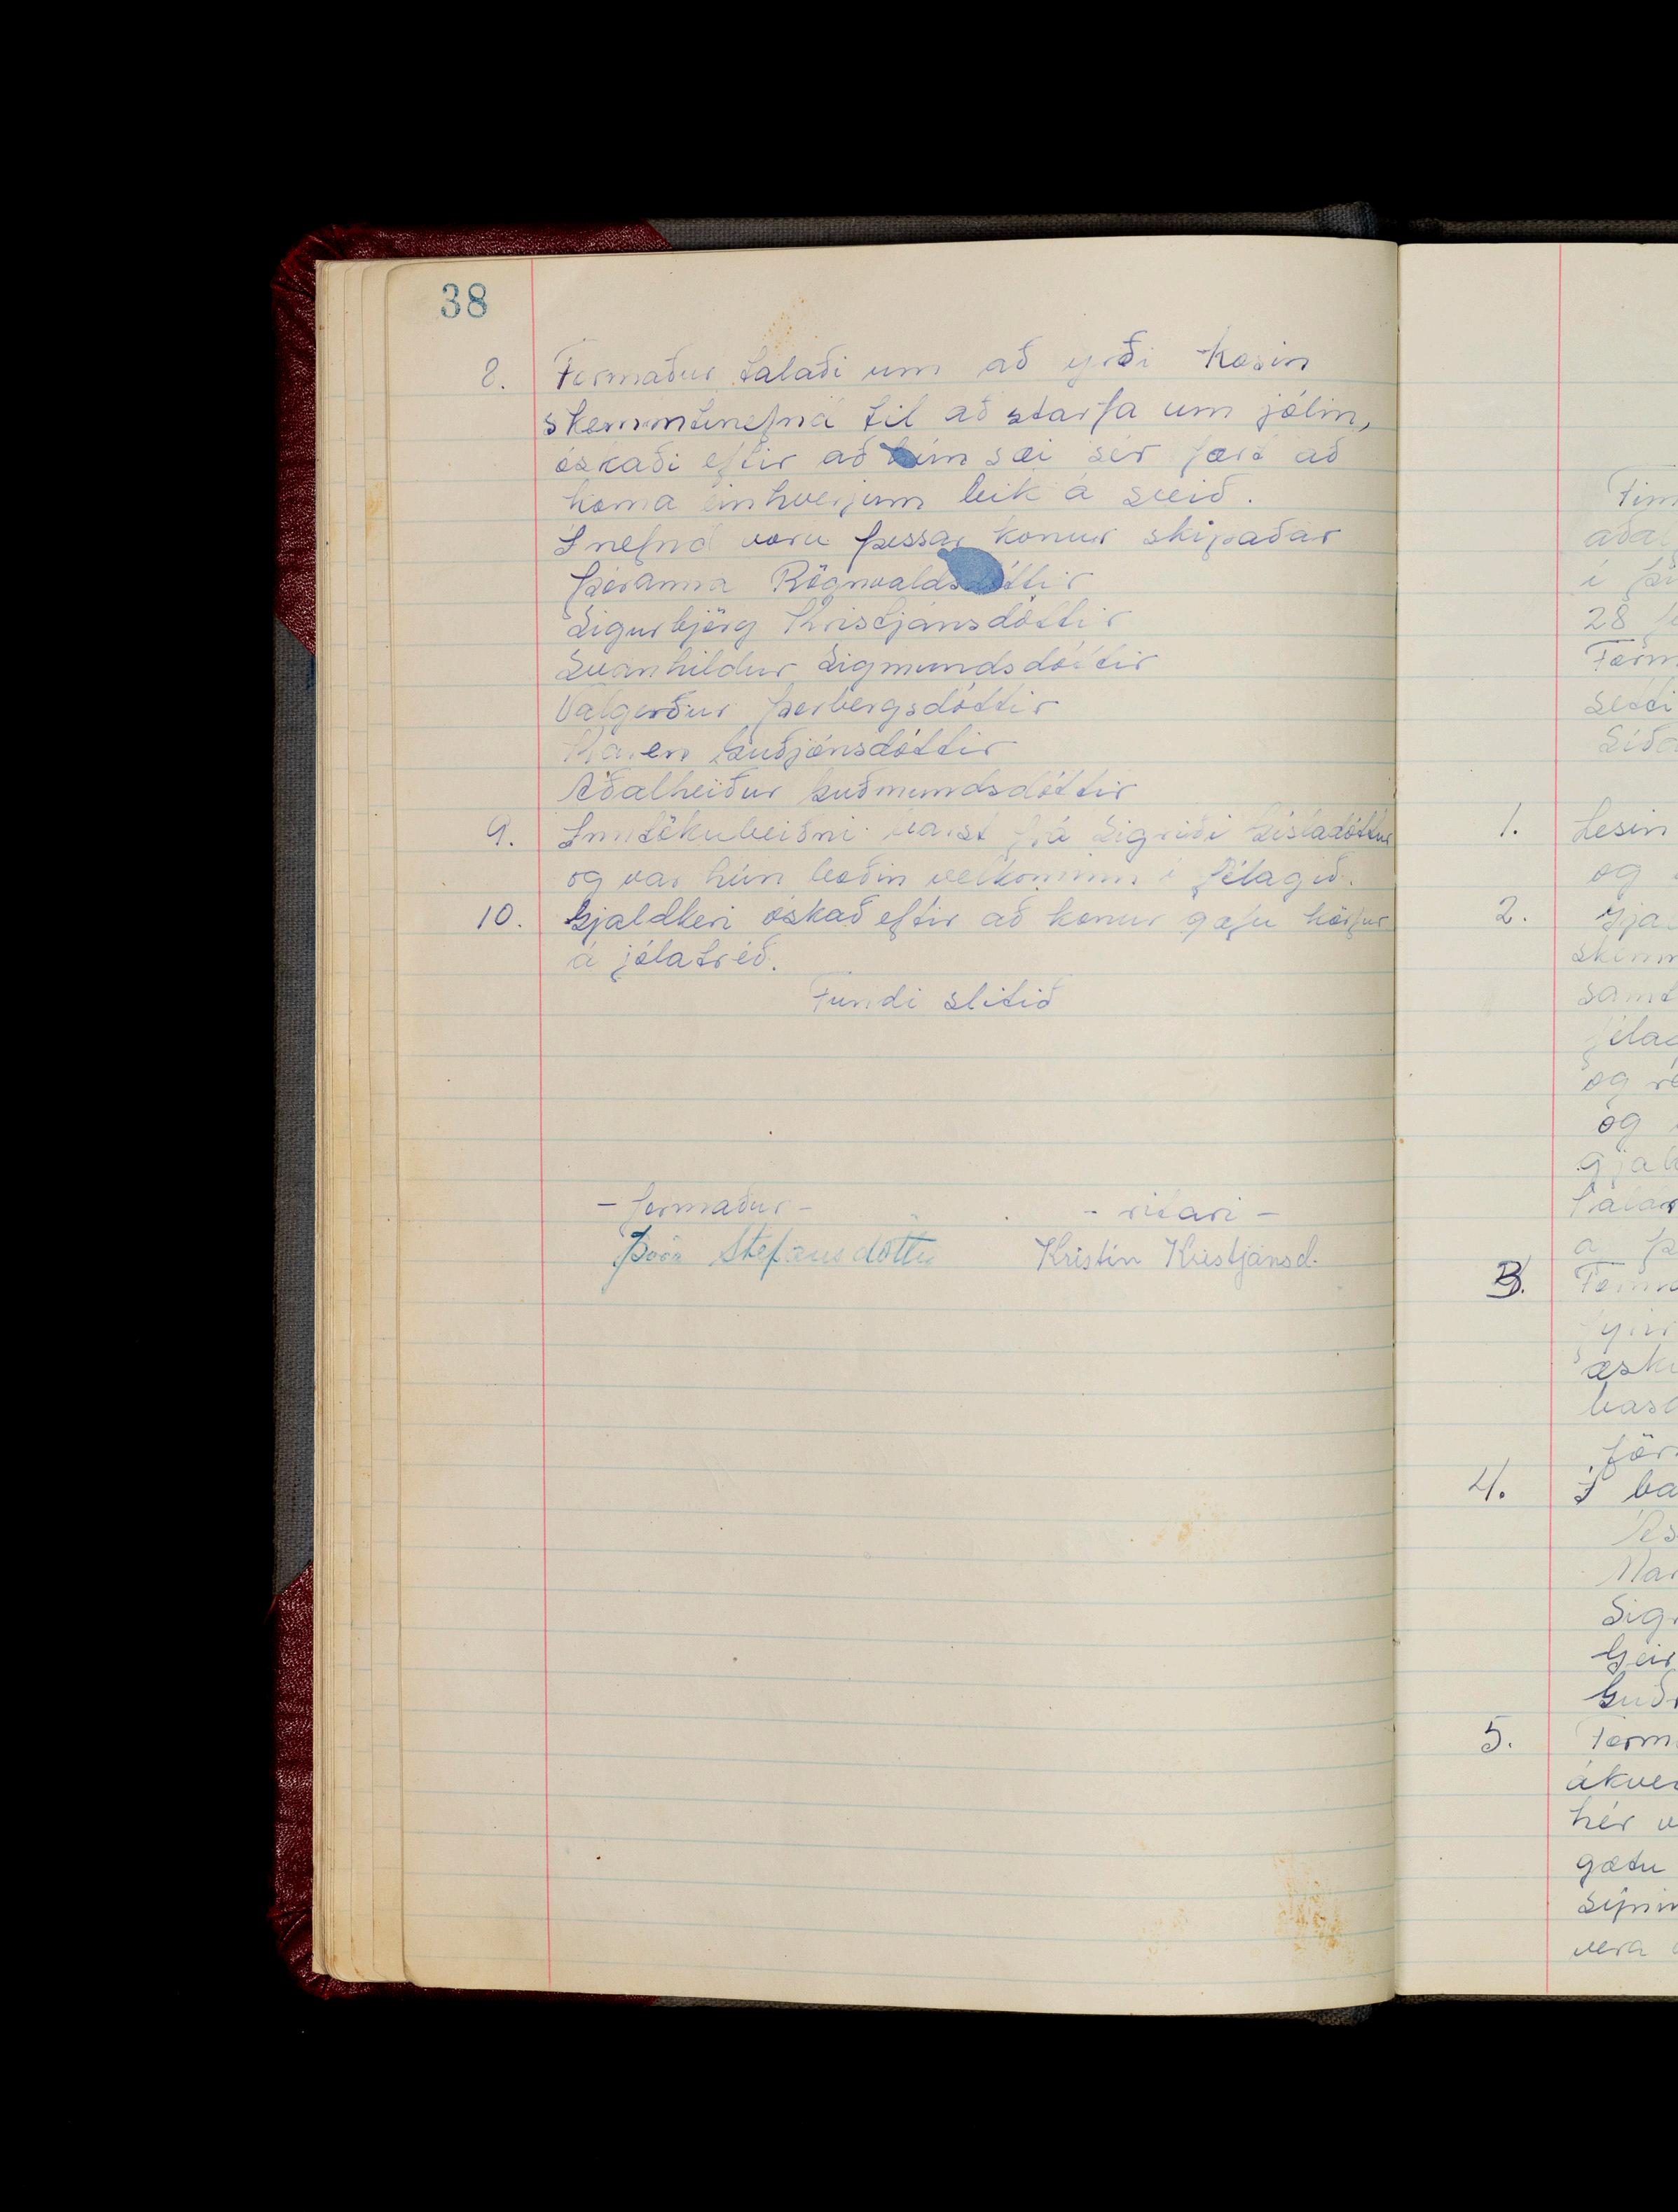 38
8. Formaður talaði um að yrði kosin
skemmtinefnd til að starfa um jólin,
óskaði eftir að hún sæi sér fært að
koma einhverjum leik á sveið.
Í nefnd voru þessar konur skipaðar
Þóranna Rögnvaldsdóttir
Sigurbjörg Kristjánsdóttir
Svanhildur Sigmundsdóttir
Valgerður Þorbergsdóttir
Karen Guðjónsdóttir
Aðalheiður Guðmundsdóttir
9. Inntökubeiðni barst frá Sigríði Gísladóttur
og var hún boðin velkominn í félagið.
10. Gjaldkeri óskað eftir að konur gæfu körfur
á jólatréð.
Fundi slitið
- formaður - - ritari -
Þóra Stefánsdóttir Kristín Kristjánsd.
aðal
28
Form
setti
1. Lesin
og
2. Gja
skemm
samt
félag
og
og
gjal
3.
æsku
4. Í ba
Mar
Sigr
Geir
Guðr
5. Form
ákve
hér v
gætu
vera